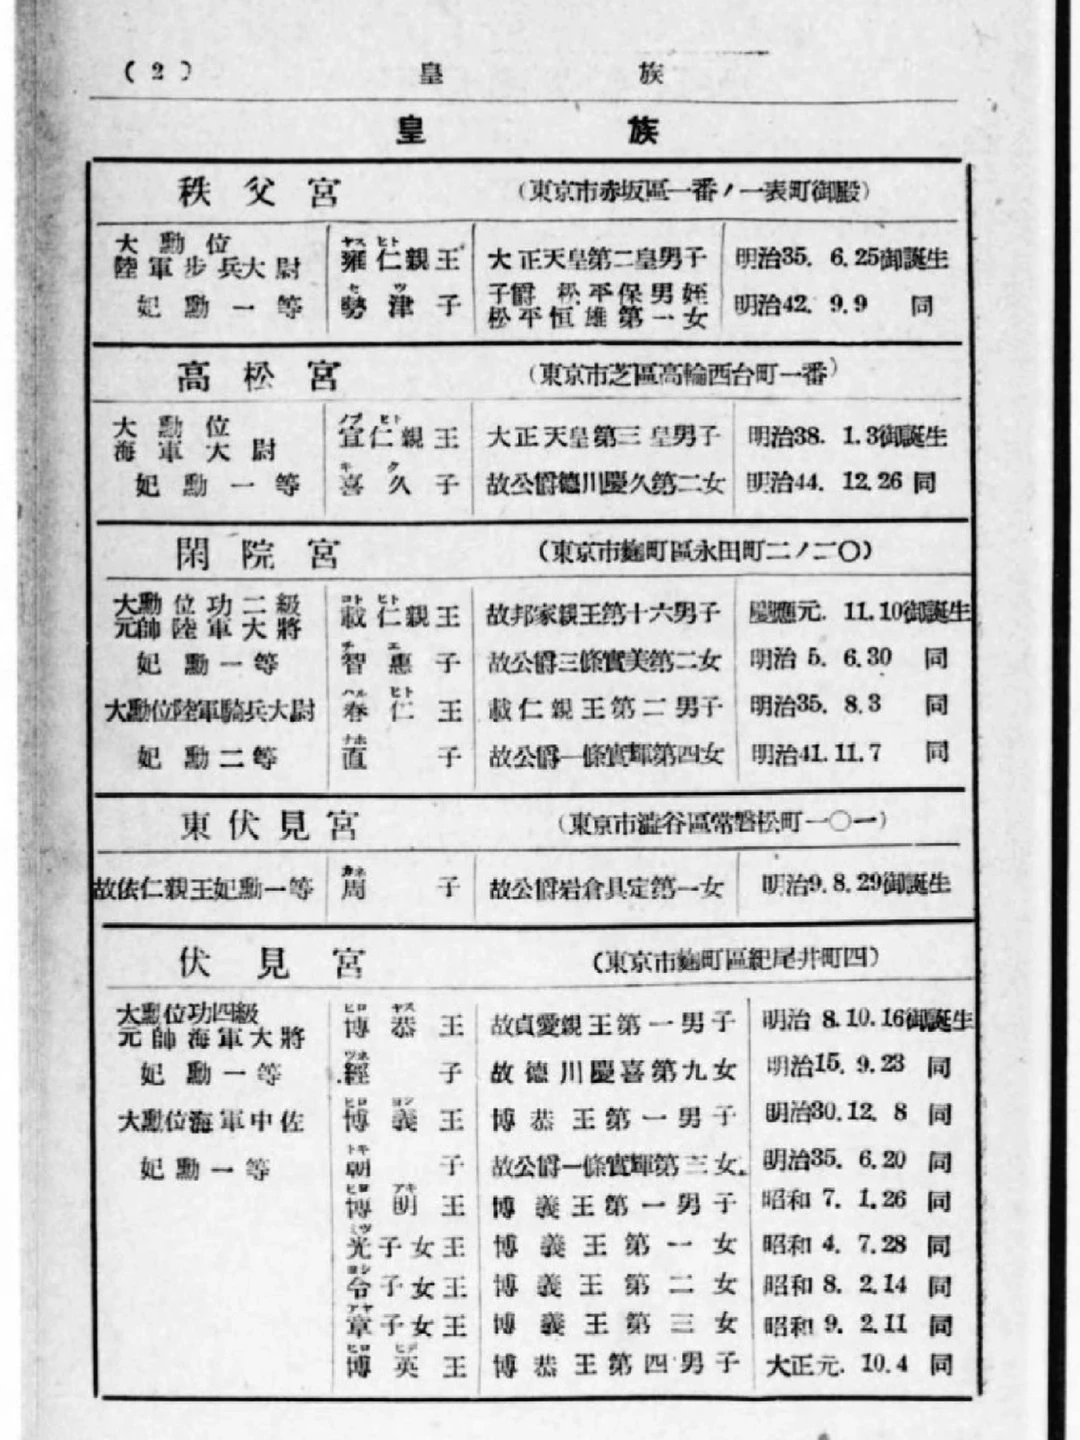 (2) 皇族
皇族
秩父宮 (東京市赤坂區一番ノ一表町御殿)
大勳位
陸軍步兵大尉 雍仁親王 ヤスヒト 大正天皇第二皇男子 明治35. 6.25御誕生
妃勳一等 勢津子 セツ 子爵松平保男姪 明治42. 9.9 同
松平恒雄第一女
高松宮 (東京市芝區高輪西台町一番)
大勳位
海軍大尉 宣仁親王 ノブヒト 大正天皇第三皇男子 明治38. 1.3御誕生
妃勳一等 喜久子 キク 故公爵德川慶久第二女 明治44. 12.26 同
閑院宮 (東京市麴町區永田町二ノ二〇)
大勳位功二級
元帥陸軍大將 載仁親王 コトヒト 故邦家親王第十六男子 慶應元. 11.10御誕生
妃勳一等 智惠子 チエ 故公爵三條實美第二女 明治 5. 6.30 同
大勳位陸軍騎兵大尉 春仁王 ハルヒト 載仁親王第二男子 明治35. 8.3 同
妃勳二等 直子 ナホ 故公爵一條實輝第四女 明治41.11.7 同
東伏見宮 (東京市澁谷區常磐松町一〇一)
故依仁親王妃勳一等 周子 カネ 故公爵岩倉具定第一女 明治9.8.29御誕生
伏見宮 (東京市麴町區紀尾井町四)
大勳位功四級
元帥海軍大將 博恭王 ヒロヤス 故貞愛親王第一男子 明治 8.10.16御誕生
妃勳一等 經子 ツネ 故德川慶喜第九女 明治15. 9.23 同
大勳位海軍中佐 博義王 ヒロヨシ 博恭王第一男子 明治30.12. 8 同
妃勳一等 朝子 トキ 故公爵一條實輝第三女 明治35. 6.20 同
博明王 ヒロアキ 博義王第一男子 昭和 7. 1.26 同
光子女王 ミツ 博義王第一女 昭和 4. 7.28 同
令子女王 ヨシ 博義王第二女 昭和 8. 2.14 同
章子女王 アヤ 博義王第三女 昭和 9. 2.11 同
博英王 ヒロヒデ 博恭王第四男子 大正元. 10.4 同